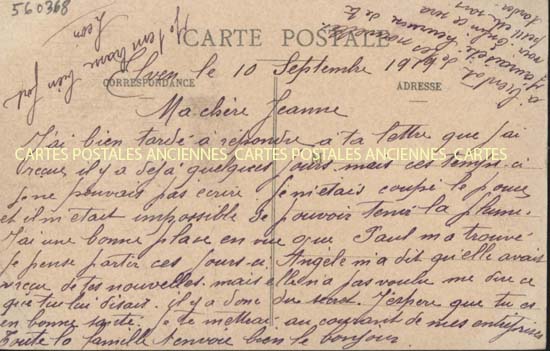 560368
CARTE POSTALE
CORRESPONDANCE
ADRESSE
le 10 Septembre 1919
Ma chère Jeanne
J'ai bien tardé à répondre à ta lettre que j'ai
CARTES POSTALES ANCIENNES CARTES POSTALES ANCIENNES CARTES
reçue, il y a déjà quelques jours, mais ces temps-ci
je ne pouvais pas écrire je m'étais coupé le pouce
et il m'était impossible de pouvoir tenir la plume.
J'ai une bonne place en vue que Paul m'a trouvé
je pense partir ces jours-ci Angèle m'a dit qu'elle avait
reçue de tes nouvelles. mais elle n'a pas voulu me dire ce
que tu lui disais. il y a donc du secret. J'espère que tu es
en bonne santé. Je te mettrai au courant de mes entreprises
Toute la famille t'envoie bien le bonjour.